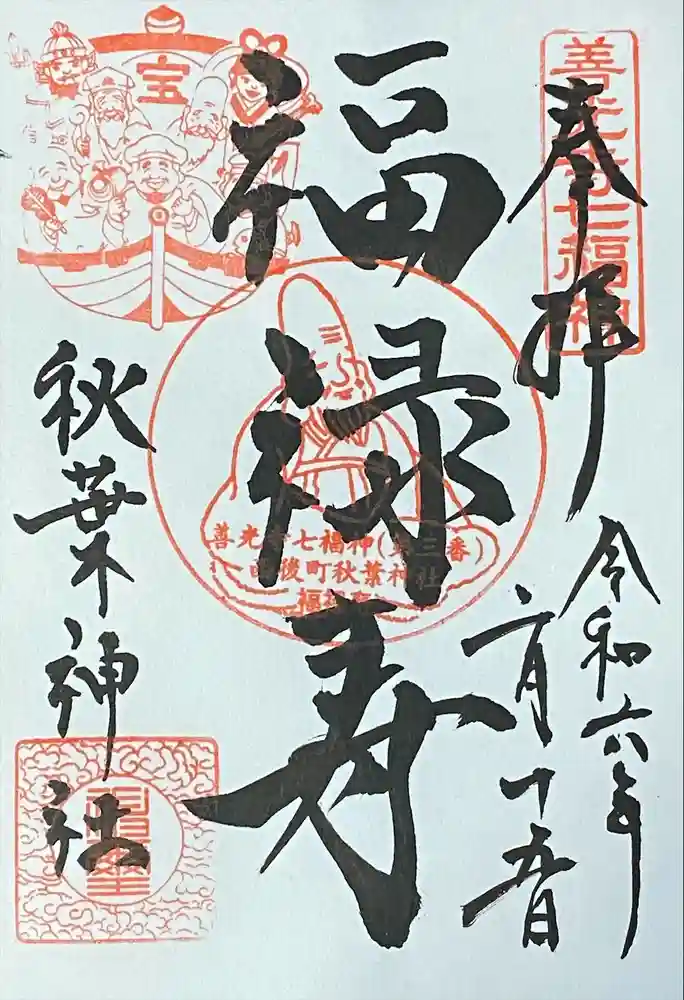 奉拝
善光寺七福神
令和六年
六月十五日
福禄寿
宝
善光寺七福神(第三番)
西後町秋葉神社
福禄寿
秋葉神社